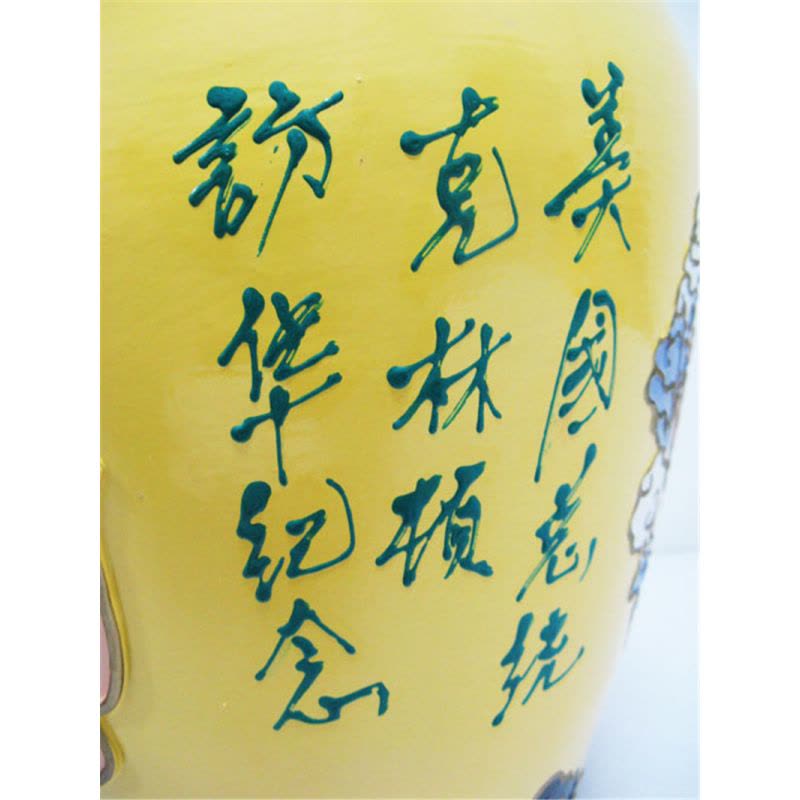 美國总统
克林顿
訪华纪念